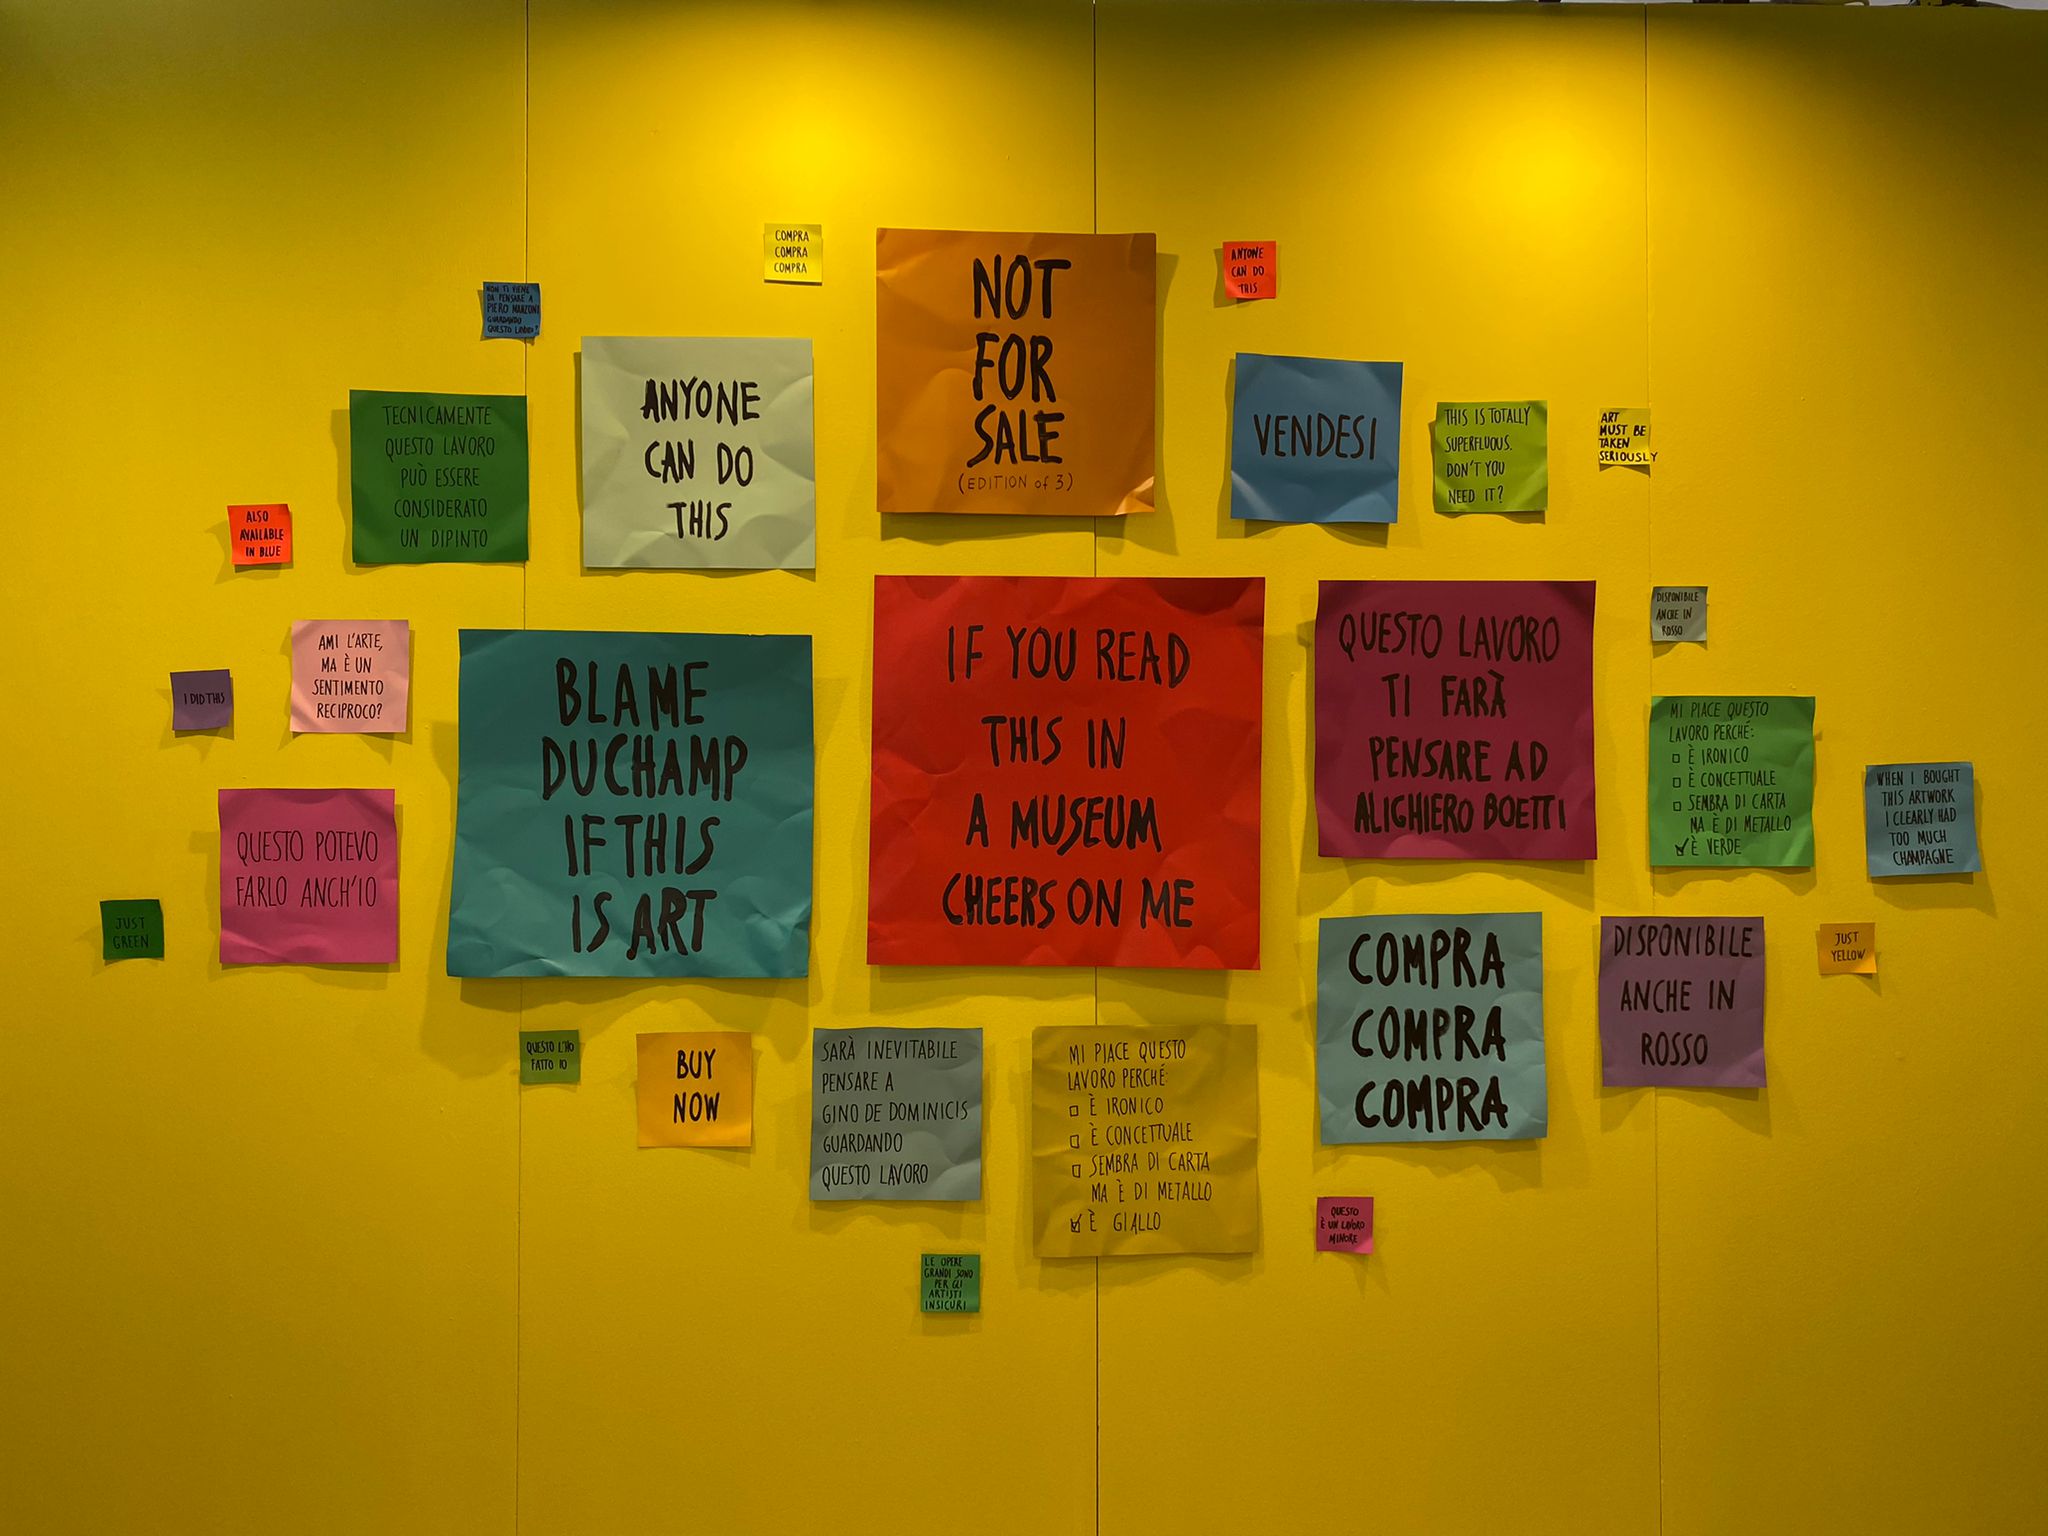 COMPRA
COMPRA
COMPRA
NOT
FOR
SALE
(EDITION of 3)
ANYONE
CAN DO
THIS
NON TI VIENE
DA PENSARE A
PIERO MANZONI
GUARDANDO
QUESTO LAVORO?
ANYONE
CAN DO
THIS
VENDESI
THIS IS TOTALLY
SUPERFLUOUS.
DON'T YOU
NEED IT?
ART
MUST BE
TAKEN
SERIOUSLY
TECNICAMENTE
QUESTO LAVORO
PUÒ ESSERE
CONSIDERATO
UN DIPINTO
ALSO
AVAILABLE
IN BLUE
AMI L'ARTE,
MA È UN
SENTIMENTO
RECIPROCO?
I DID THIS
BLAME
DUCHAMP
IF THIS
IS ART
IF YOU READ
THIS IN
A MUSEUM
CHEERS ON ME
QUESTO LAVORO
TI FARÀ
PENSARE AD
ALIGHIERO BOETTI
DISPONIBILE
ANCHE IN
ROSSO
MI PIACE QUESTO
LAVORO PERCHÉ:
☐ È IRONICO
☐ È CONCETTUALE
☐ SEMBRA DI CARTA
MA È DI METALLO
☑ È VERDE
WHEN I BOUGHT
THIS ARTWORK
I CLEARLY HAD
TOO MUCH
CHAMPAGNE
QUESTO POTEVO
FARLO ANCH'IO
JUST
GREEN
COMPRA
COMPRA
COMPRA
DISPONIBILE
ANCHE IN
ROSSO
JUST
YELLOW
QUESTO L'HO
FATTO IO
BUY
NOW
SARÀ INEVITABILE
PENSARE A
GINO DE DOMINICIS
GUARDANDO
QUESTO LAVORO
MI PIACE QUESTO
LAVORO PERCHÉ:
☐ È IRONICO
☐ È CONCETTUALE
☐ SEMBRA DI CARTA
MA È DI METALLO
☑ È GIALLO
QUESTO
È UN LAVORO
MINORE
LE OPERE
GRANDI SONO
PER GLI
ARTISTI
INSICURI